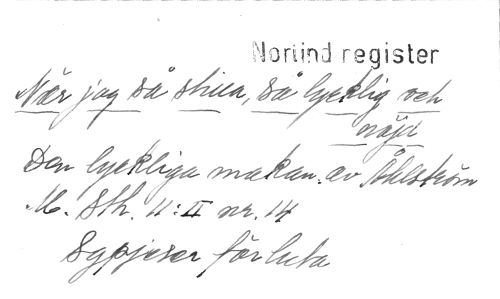 Norlind register
När jag så stilla, så lycklig och
nöjd
Den lyckliga makan. av Åhlström
M. Sth. 4:II nr. 14
för luta